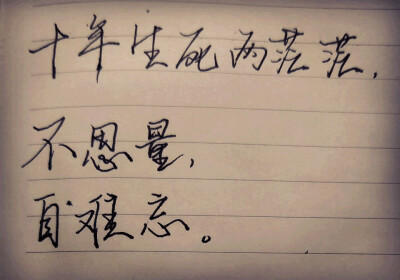 十年生死两茫茫，
不思量，
自难忘。